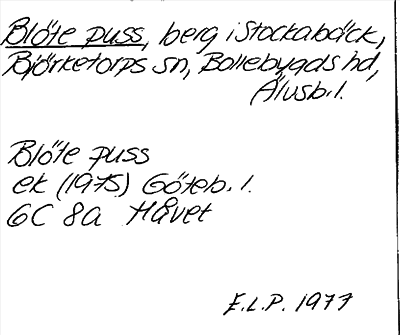 Blöte puss, berg i Stockabäck,
Björketorps sn, Bollebygds hd,
Älvsb. l.
Blöte puss
ek (1975) Göteb. l.
6C 8a Håvet
E.L.P. 1977